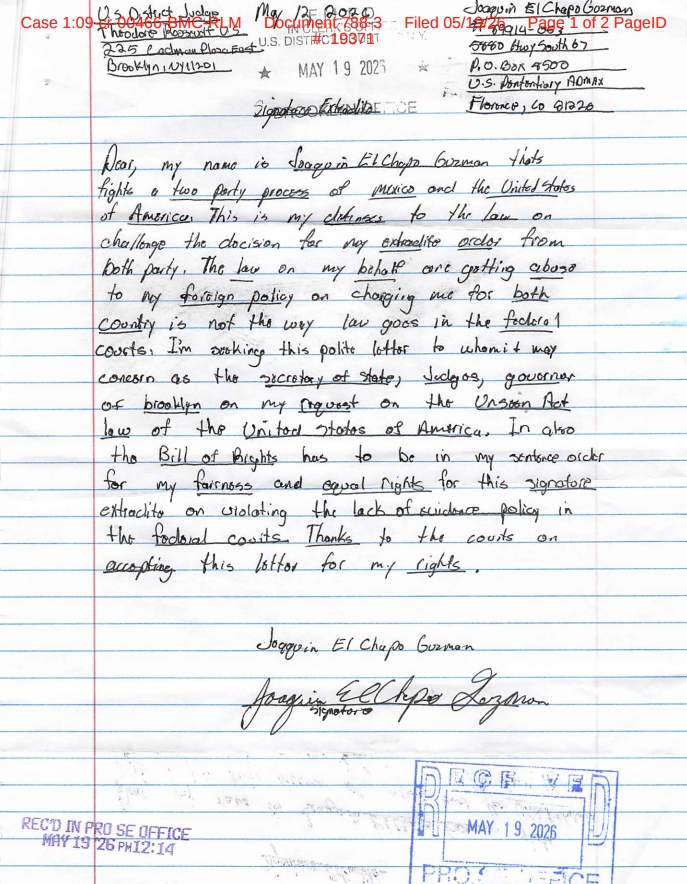 Case 1:09-cr-00466-BMC-RLM Document 786-3 Filed 05/19/26 Page 1 of 2 PageID
#: 19371
U.S. District Judge
Theodore Roosevelt U.S
225 Cadman Plaza East
Brooklyn, NY 11201
May 12, 2026
IN CLERK'S
U.S. DISTRICT N.Y.
★ MAY 19 2026 ★
OFFICE
Joaquin El Chapo Guzman
# 89914-053
5880 Hwy South 67
P.O. Box 8500
U.S. Pententiary ADMAX
Florence, Co 81226
Signature Extradite
Dear, my name is Joaquin El Chapo Guzman thats
fights a two party process of mexico and the United States
of America. This is my defenses to the law on
challenge the decision for my extradite order from
both party. The law on my behalf are getting abuse
to my foreign policy on charging me for both
country is not the way law goes in the federal
courts. I'm seeking this polite letter to whom it may
concern as the secretary of state, Judges, governor
of brooklyn on my request on the Unseen Act
law of the United States of America. In also
the Bill of Rights has to be in my sentence order
for my fairness and equal rights for this signature
extradite on violating the lack of evidence policy in
the federal courts. Thanks to the courts on
accepting this letter for my rights.
Joaquin El Chapo Guzman
Joaquin El Chapo Guzman
Signature
REC'D IN PRO SE OFFICE
MAY 19 '26 PM12:14
RECEIVED
MAY 19 2026
PRO SE OFFICE